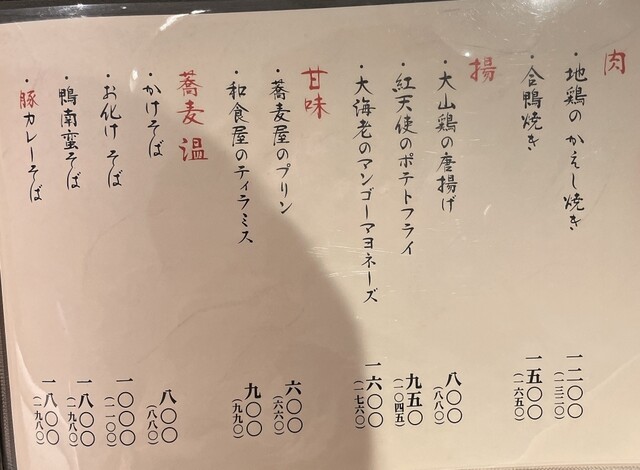 肉
・地鶏のかえし焼き 一二〇〇(一三二〇)
・合鴨焼き 一五〇〇(一六五〇)
揚
・大山鶏の唐揚げ 八〇〇(八八〇)
・紅天使のポテトフライ 九五〇(一〇四五)
・大海老のマンゴーマヨネーズ 一六〇〇(一七六〇)
甘味
・蕎麦屋のプリン 六〇〇(六六〇)
・和食屋のティラミス 九〇〇(九九〇)
蕎麦 温
・かけそば 八〇〇(八八〇)
・お化け そば 一〇〇〇(一一〇〇)
・鴨南蛮そば 一八〇〇(一九八〇)
・豚カレーそば 一八〇〇(一九八〇)